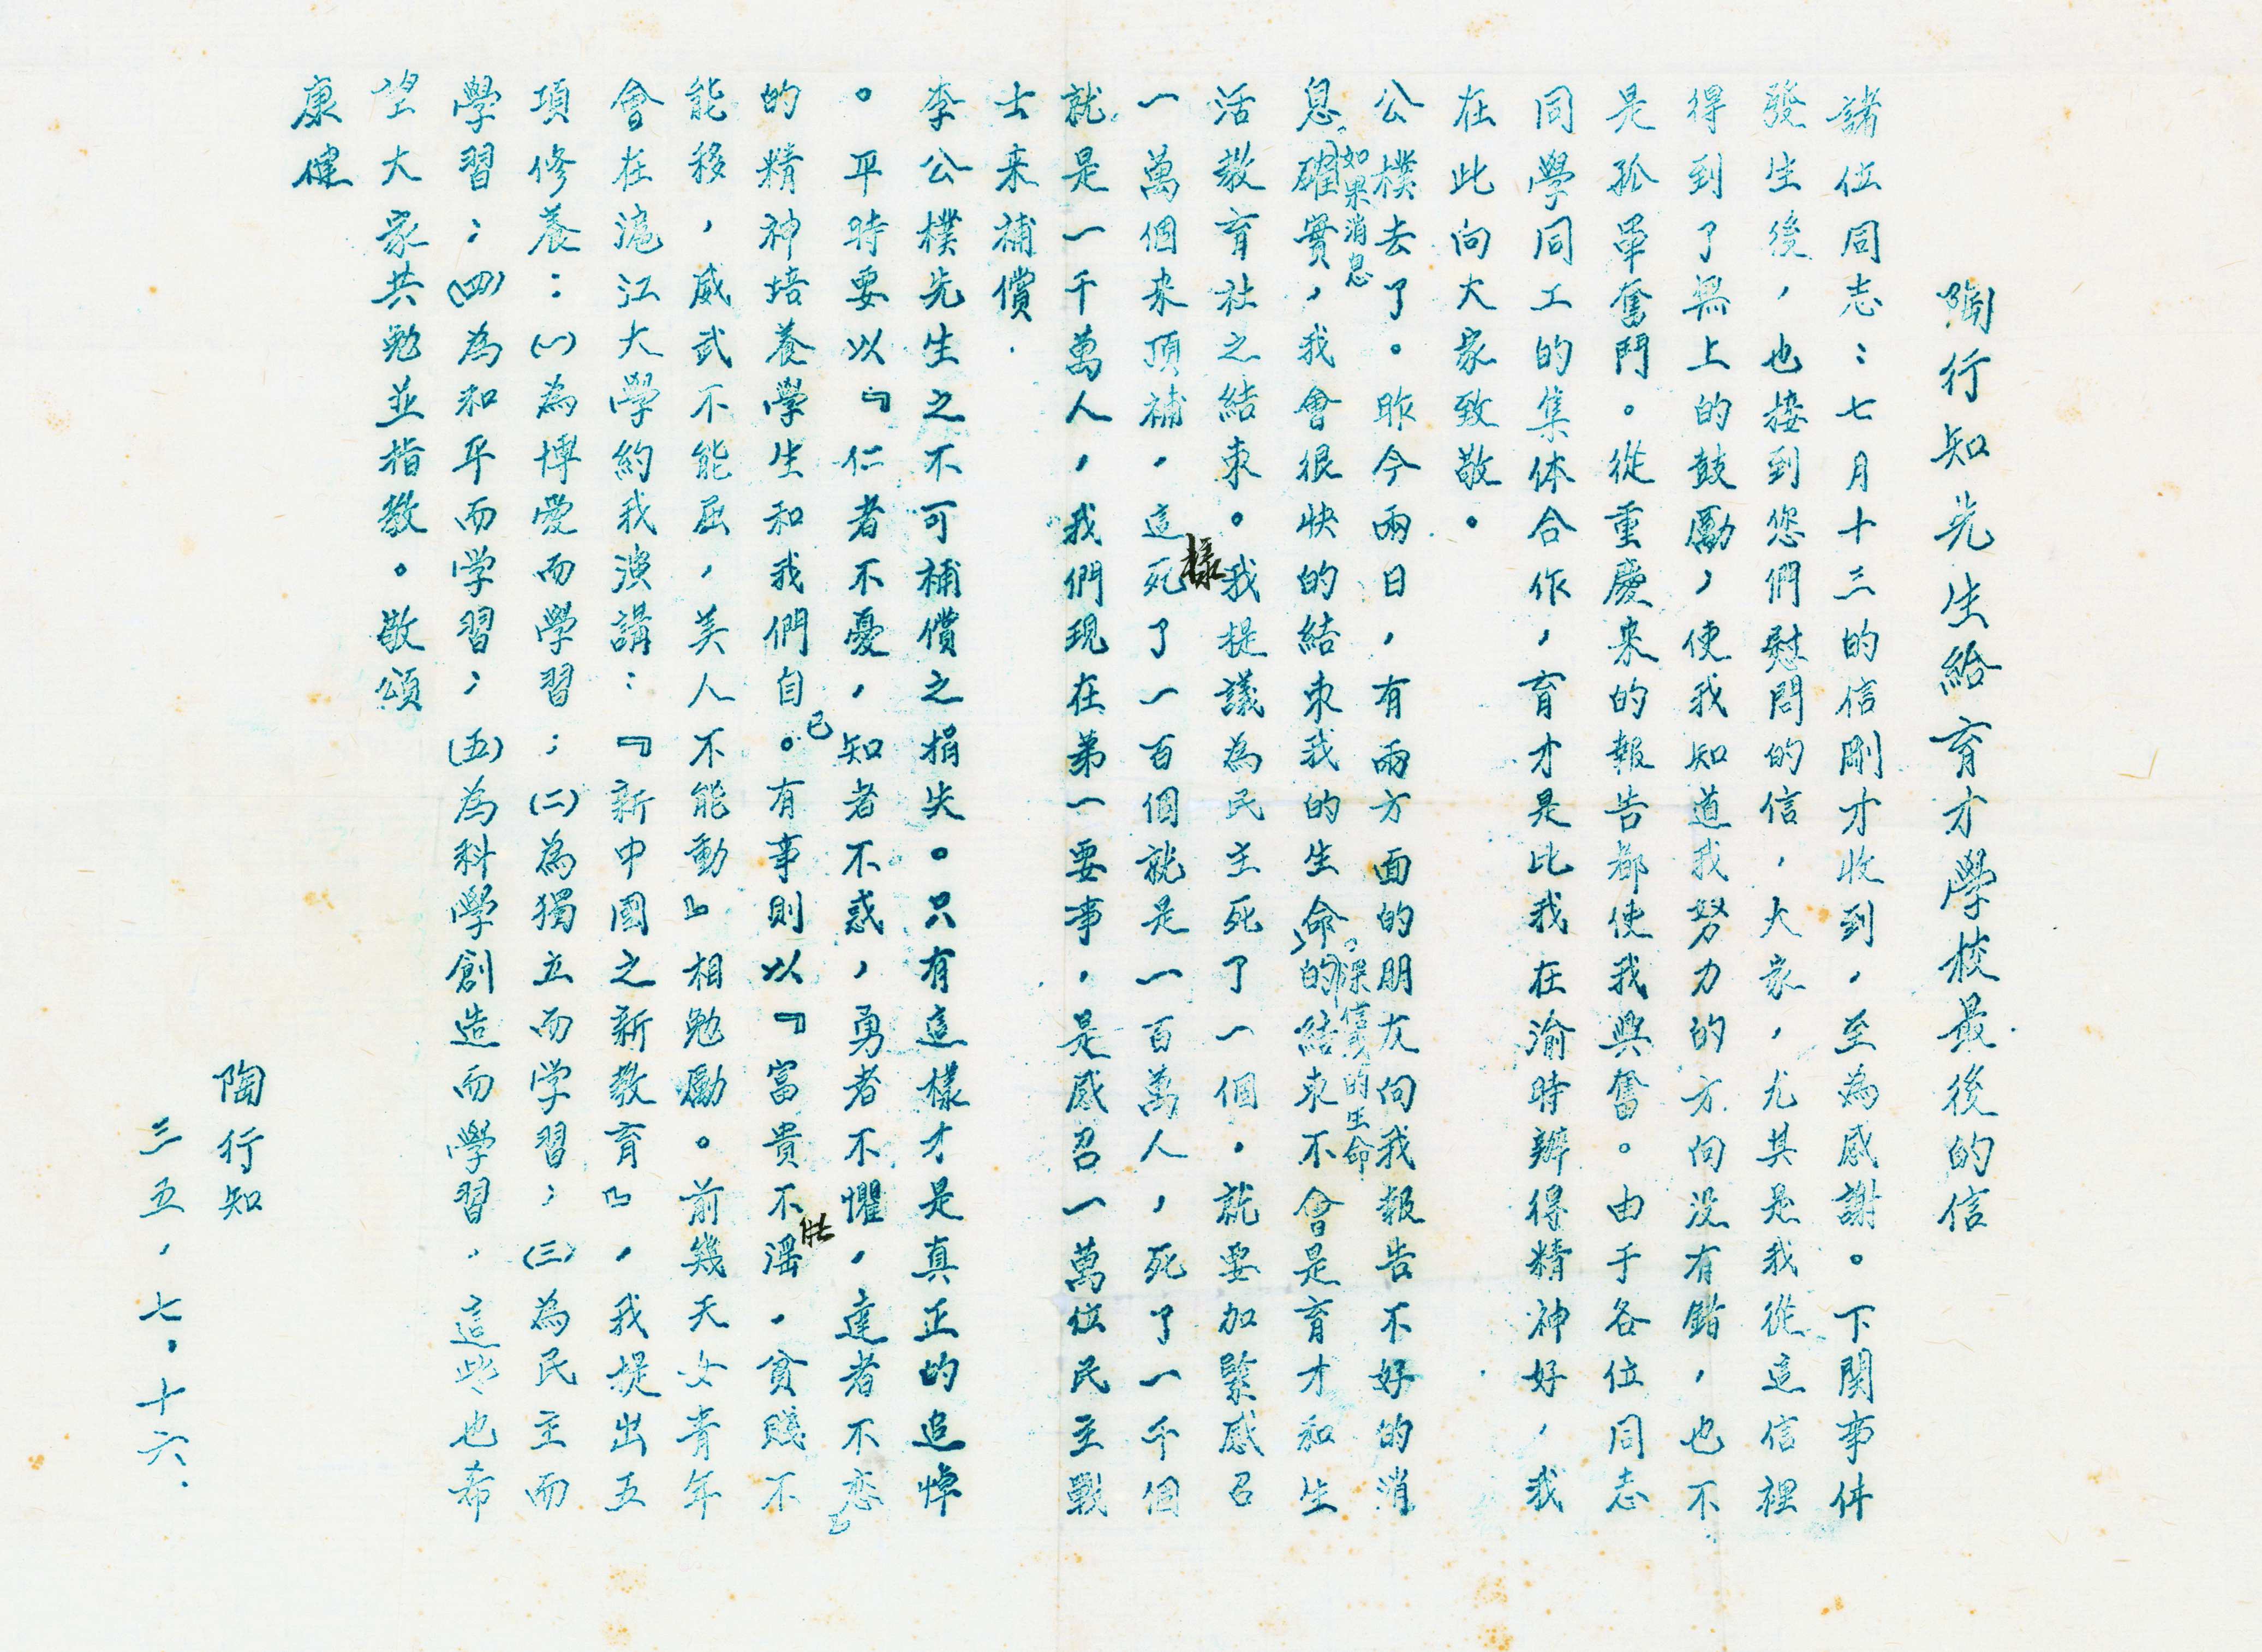 陶行知先生給育才學校最後的信
諸位同志：七月十三的信剛才收到，至為感謝。下関事件
發生後，也接到您們慰問的信，大家，尤其是我從這信裡
得到了無上的鼓勵，使我知道我努力的方向没有錯，也不
是孤單奮鬥。從重慶来的報告都使我興奮。由于各位同志
同學同工的集体合作，育才是比我在渝時辦得精神好，我
在此向大家致敬。
公樸去了。昨今兩日，有兩方面的朋友向我報告不好的消
息。如果消息確實，我會很快的結束我的生命，深信我的生命的結束不會是育才和生
活教育社之結束。我提議為民主死了一個，就要加緊感召
一萬個来頂補，這樣死了一百個就是一百萬人，死了一千個
就是一千萬人，我們現在第一要事，是感召一萬位民主戰
士来補償．
李公樸先生之不可補償之損失。只有這樣才是真正的追悼
。平時要以『仁者不憂，知者不惑，勇者不懼，達者不恋』
的精神培養學生和我們自己。有事則以『富貴不能滛，貧賤不
能移，威武不能屈，美人不能動』相勉勵。前幾天女青年
會在滬江大學約我演講：『新中國之新教育』，我提出五
項修養：(一)為博愛而學習；(二)為獨立而学習；(三)為民主而
學習；(四)為和平而学習；(五)為科學創造而學習，這些也希
望大家共勉並指教。敬頌
康健
陶行知
三五，七．十六．